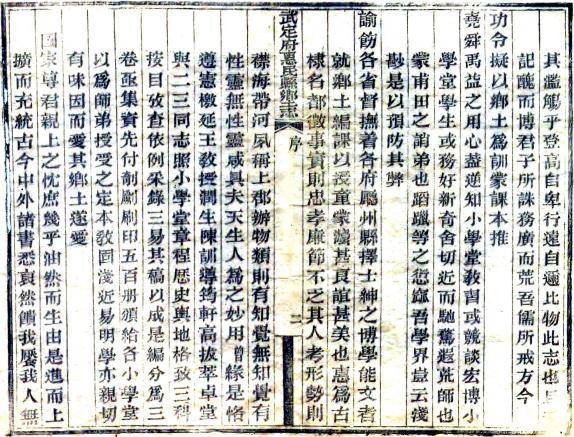 其濫觴乎登高自卑行遠自邇比物此志也且
記醜而博君子所誅務廣而荒吾儒所戒方今
功令擬以鄉土爲訓蒙課本推
堯舜禹益之用心盡逓知小學堂敎習或競談宏博小
學堂學生或務好新奇舍切近而馳騖遐荒師也
蒙甫田之誚弟也蹈躐等之愆寧吾學界豈云淺
尠是以預防其弊
諭飭各省督撫着各府廳州縣擇士紳之博學能文者
就鄉土編課以授童蒙讀甚良誼甚美也惠爲古
棣名郡徵事實則忠孝廉節不乏其人考形勢則
武定府惠民縣鄉土志 序 二
襟海帶河夙稱上郡辦物類則有知覺無知覺有
性靈無性靈咸具夫天生人爲之妙用曾緣是恪
遵憲檄延王敎授潤生陳訓導筠軒高拔萃卓堂
與二三同志照小學堂章程歷史輿地格致三科
按目攷查依例采錄三易其稿以成是編分爲三
卷亟集資先付剞劂刷印五百册頒給各小學堂
以爲師弟授受之定本敎固淺近易明學亦親切
有味因而愛其鄉土遂愛
國家尊君親上之忱庶幾乎油然而生由是進而上
擴而充統古今中外諸書悉裒然饋我饜我人無